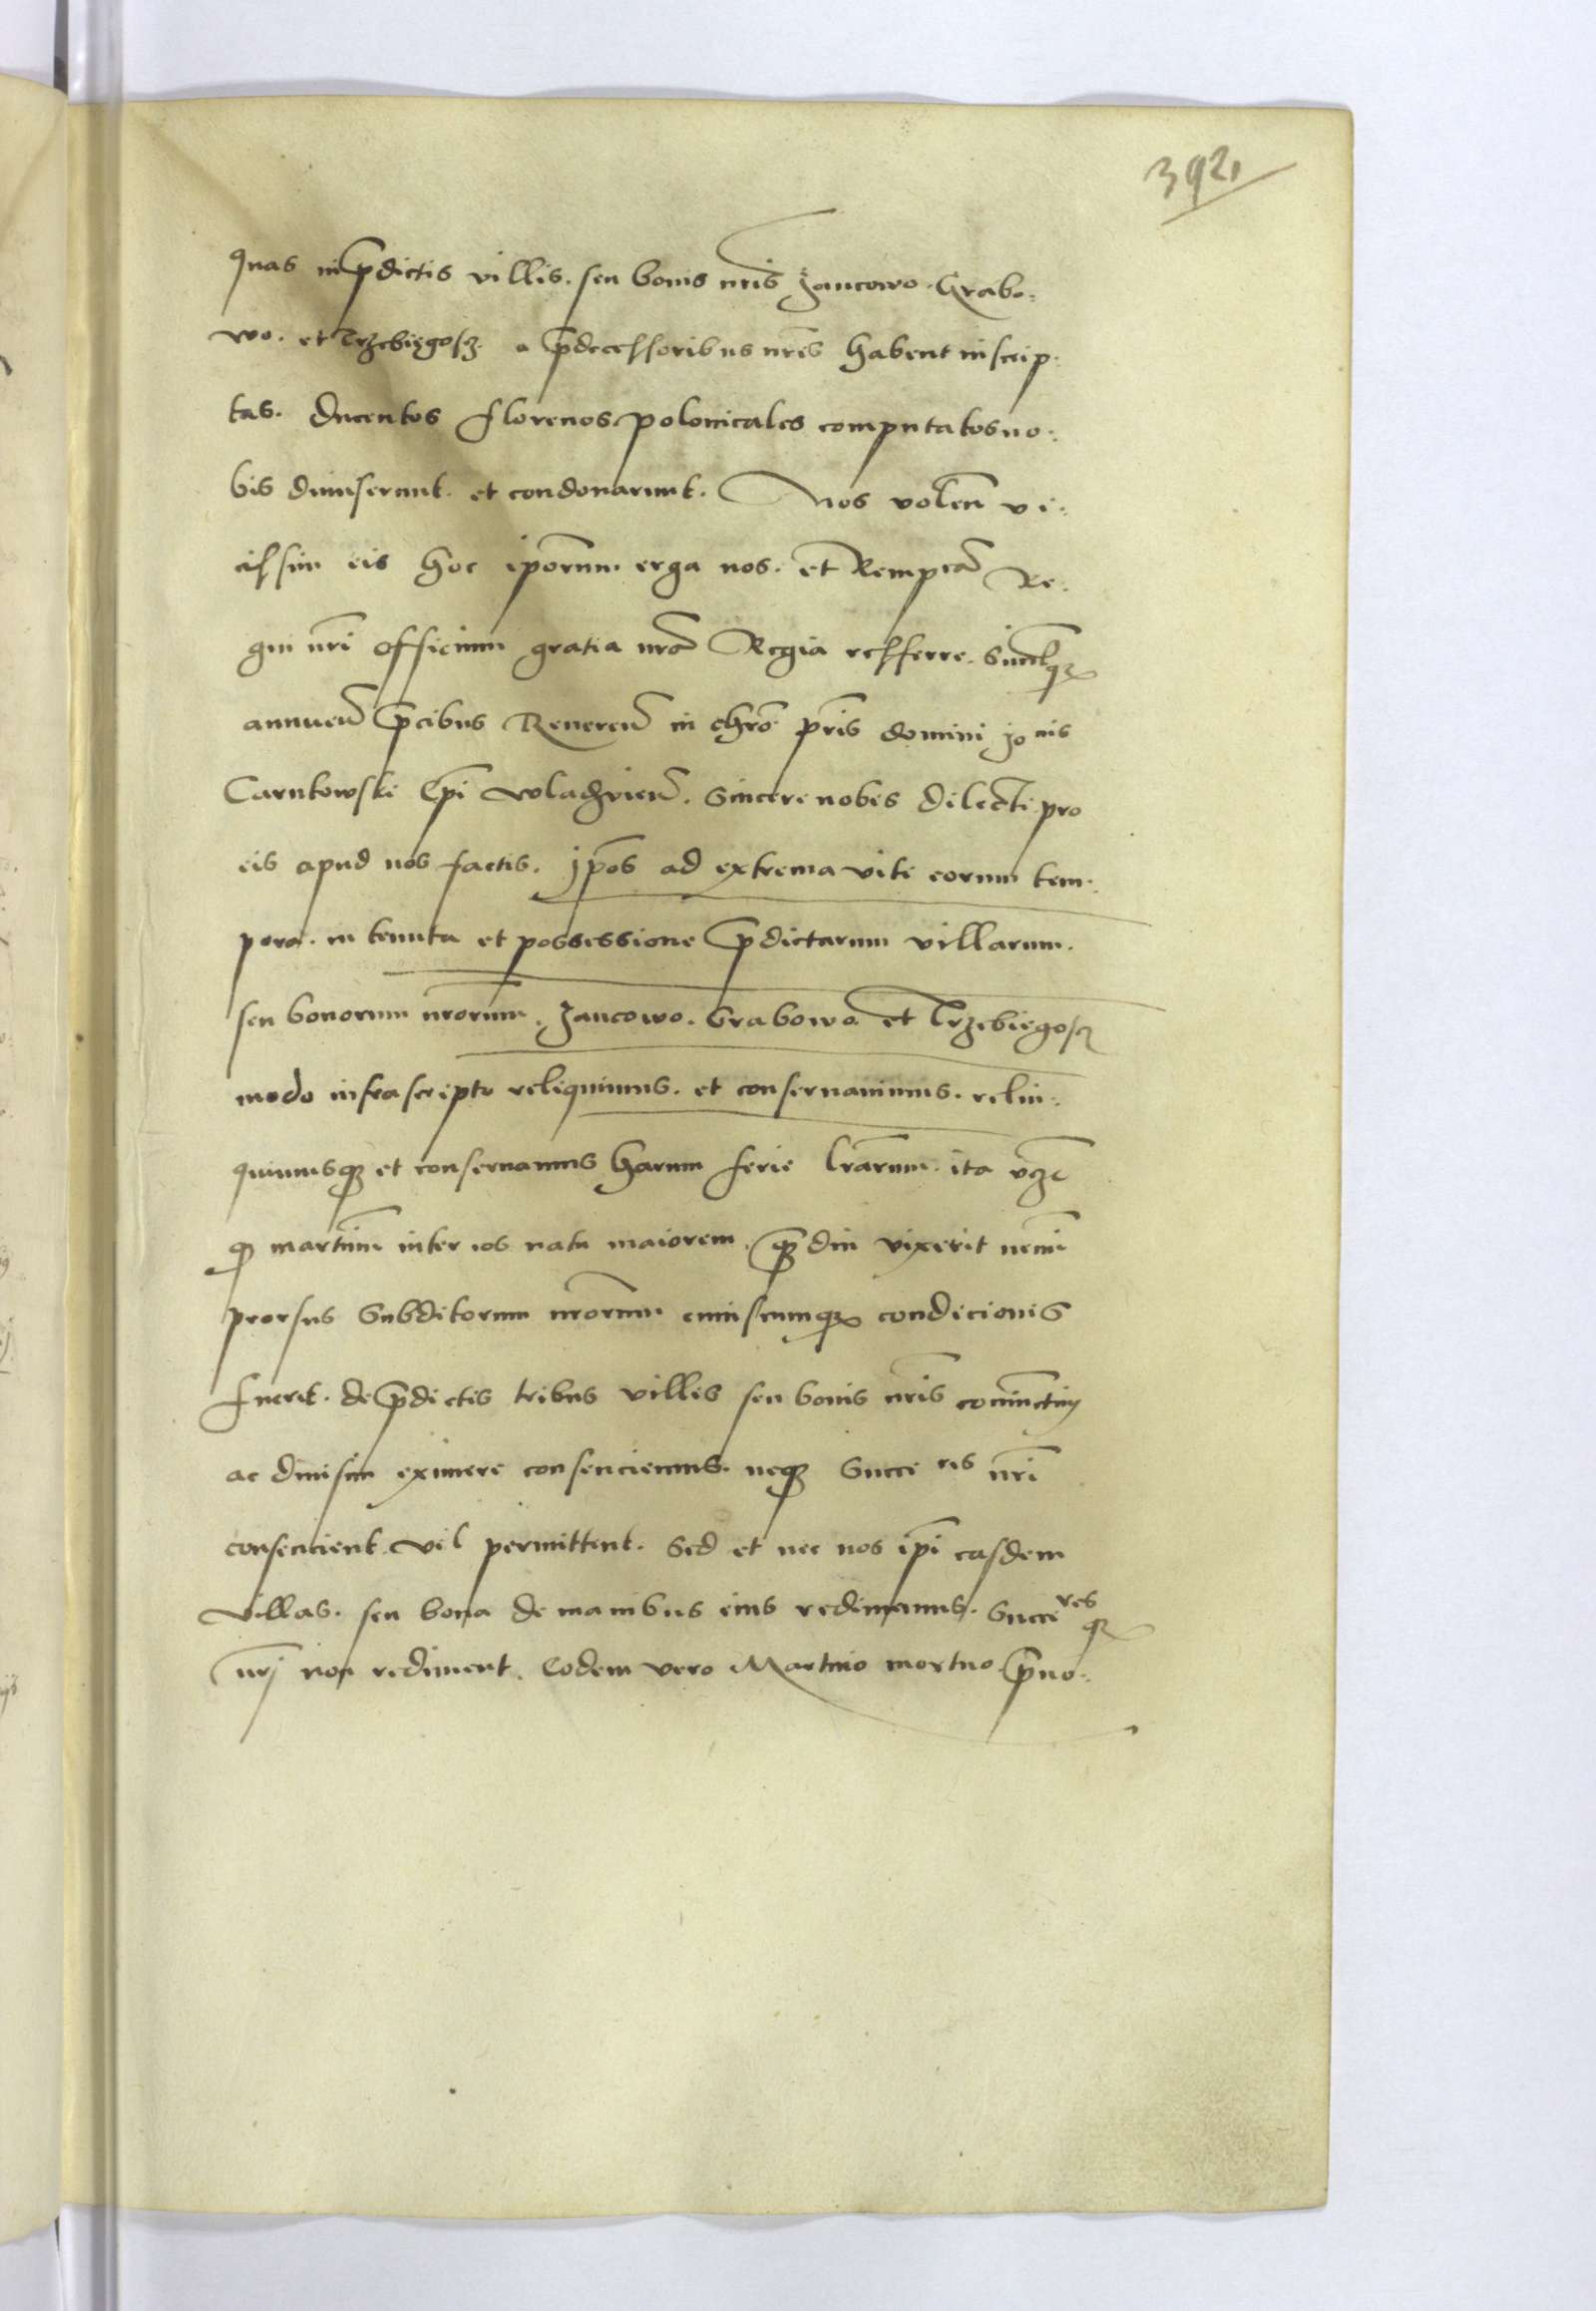 392
quas in p̄dictis villis. seu bonis nr̄is Jancowo. Grabo:
wo. et Trzebięgosz. a p̄decessoribus nr̄is habent inscrip:
tas. ducentos florenos polonicales computatos no:
bis dimiserunt. et condonarunt. Nos volen̄ vi:
cissim eis hoc ip̄orum erga nos. et Rempcā Re:
gni nr̄i officium gratia nr̄a Regia refferre. Simulq₃
annuen̄ p̄cibus Reueren̄ in chr̄o pr̄is domini Jo nis
Carnkowski Ep̄i Wladzvien̄. Sincere nobis dilecti pro
eis apud nos factis. ip̄os ad extrema vite eorum tem:
pora. in tenuta et possessione p̄dictarum villarum.
seu bonorum nr̄orum. Jancowo. Grabowo et Trzebiegosz
modo infrascripto reliquimus. et conseruauimus. relin:
quimusq₃ et conseruamus harum serie lr̄arum. ita vz̄
q̄ martinū inter eos natu maiorem. q̄diu vixerit nemī
prorsus Subditorum nr̄orum cuiuscumq₃ condicionis
fuerit. de p̄dictis tribus villis seu bonis nr̄is coniunctim
ac diuisim eximere consenciemus. neq₃ Succe res nr̄i
consencient vel permittent. Sed et nec nos ip̄i easdem
villas. seu bona de manibus eius redimemus. Succe resq₃
nr̄j non rediment. Eodem vero Martino mortuo p̄no: